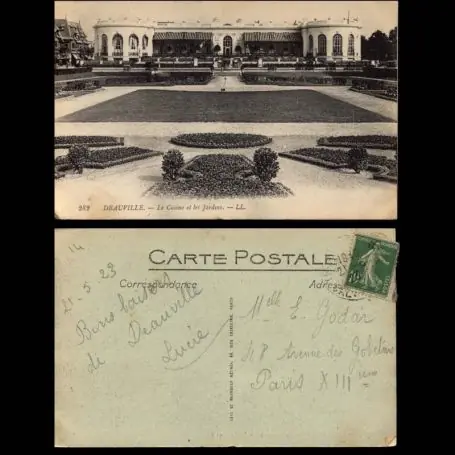 282   DEAUVILLE. — Le Casino et les Jardins. — LL.
CARTE POSTALE
Correspondance
Adresse
14
21.5.23
Bons baisers
de Deauville
Lucie
Mlle E. Godar
48 Avenue des Gobelins
Paris XIIIème